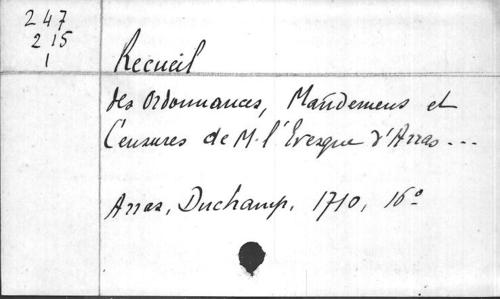 247
215
1
Recueil
des Ordonnances, Mandemens et
Censures de M. l'Evesque d'Arras ...
Arras, Duchamp, 1710, 16°